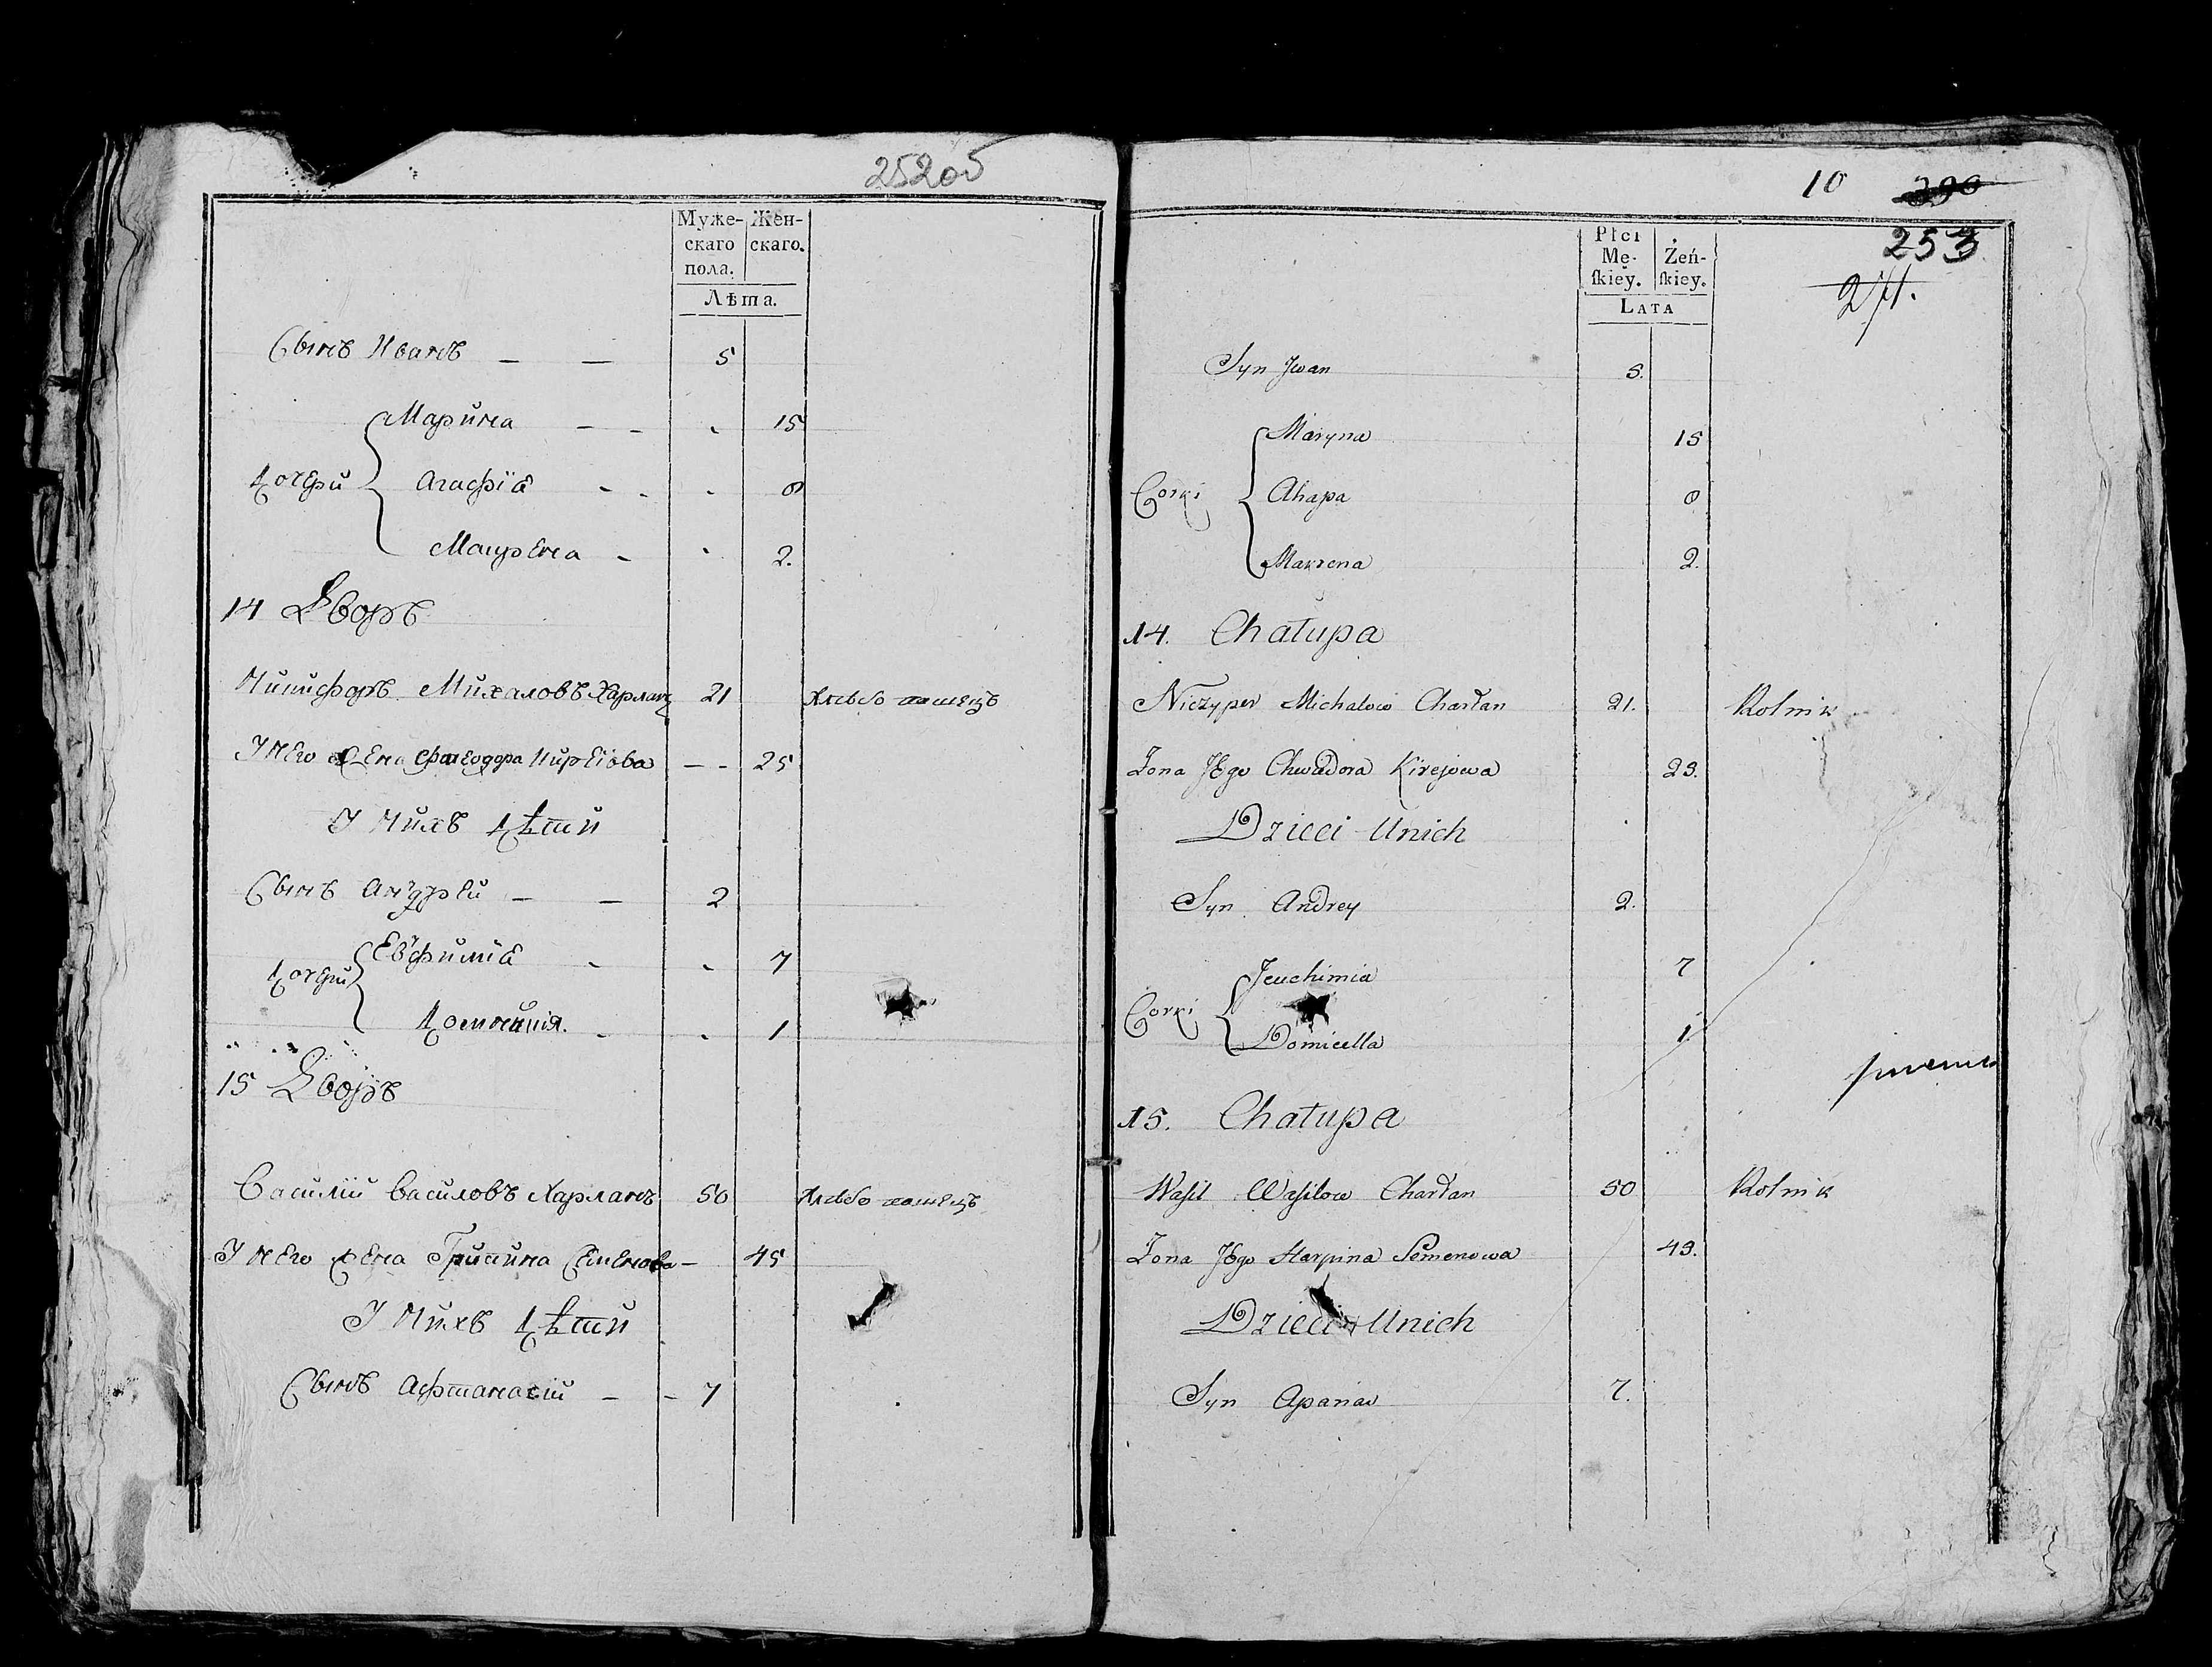 252об
Муже-
скаго
пола.
Жен-
скаго.
Лѣта.
Сынъ Иванъ — — 5
Марина — — 15
Дочери Агафіа - - 8
Макрена - 2.
14 Дворъ
Никифоръ Михаловъ Харланъ 21 Хлѣбопашецъ
У него жена Фтеодора Кирѣіова — - 25
У нихъ дѣти
Сынъ Андрей — — 2
Евфиміа 7
Дочери
1
15 Дворъ
Василій Василовъ Харланъ 50 Хлѣбопашецъ
У него жена Грипина Семенова — 45
У нихъ дѣти
Сынъ Афтанасій — - 7
10 390
253
271.
Płci
Mę-
ſkiéy.
Żeń-
ſkiey.
LATA
Syn Jwan 5.
Maryna 15
Corki Ahapa 8
Makrena 2.
14. Chałupa
Niczyper Michałow Charłan 21. Rolnik
Zona JEgo Chwadora Kirejowa 25.
Dzieci Unich
Syn Andrey 2.
Jeuchimia 7
Corki
Domicella 1
15. Chałupa
Waſil Waſilow Charłan 50 Rolnik
Zona JEgo Harpina Semenowa 45.
Dzieci Unich
Syn Apanas 7.